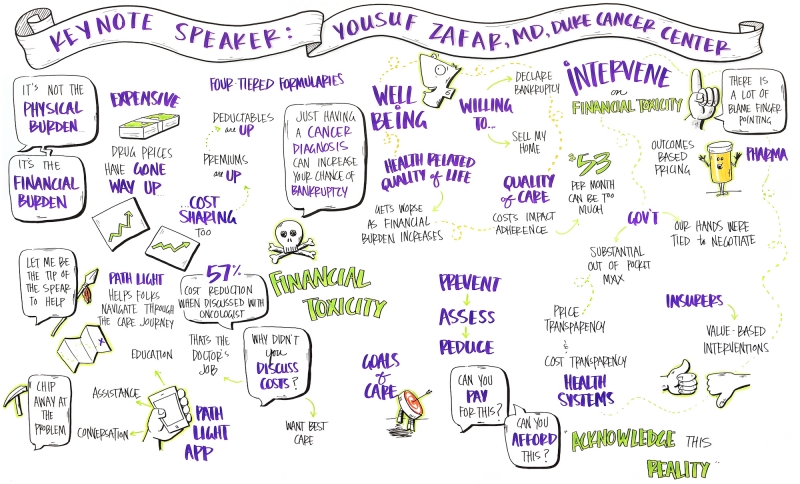 KEYNOTE SPEAKER: YOUSUF ZAFAR, MD, DUKE CANCER CENTER
IT'S NOT THE
PHYSICAL
BURDEN...
IT'S THE
FINANCIAL
BURDEN
EXPENSIVE
DRUG PRICES
HAVE GONE
WAY UP...
FOUR-TIERED FORMULARIES
DEDUCTABLES
are UP
PREMIUMS
are UP
...COST
SHARING
TOO
JUST HAVING
A CANCER
DIAGNOSIS
CAN INCREASE
YOUR CHANCE OF
BANKRUPTCY
FINANCIAL
TOXICITY
LET ME BE
THE TIP OF
THE SPEAR
TO HELP
PATH LIGHT
HELPS FOLKS
NAVIGATE THROUGH
THE CARE JOURNEY
57%
COST REDUCTION
WHEN DISCUSSED WITH
ONCOLOGIST
THAT'S THE
DOCTOR'S
JOB
WHY DIDN'T
you
DISCUSS
COSTS?
WANT BEST
CARE
CHIP
AWAY AT
THE
PROBLEM
EDUCATION
ASSISTANCE
CONVERSATION
PATH
LIGHT
APP
WELL
BEING
WILLING
TO...
DECLARE
BANKRUPTCY
SELL MY
HOME
HEALTH RELATED
QUALITY of LIFE
GETS WORSE
AS FINANCIAL
BURDEN INCREASES
QUALITY
of CARE
COSTS IMPACT
ADHERENCE
$53
PER MONTH
CAN BE TOO
MUCH
PREVENT
ASSESS
REDUCE
GOALS
of
CARE
CAN YOU
PAY
FOR THIS?
CAN YOU
AFFORD
THIS?
INTERVENE
on
FINANCIAL TOXICITY
THERE IS
A LOT OF
BLAME FINGER
POINTING
OUTCOMES
BASED
PRICING
PHARMA
GOV'T
OUR HANDS WERE
TIED to NEGOTIATE
SUBSTANTIAL
OUT OF POCKET
MAX
INSURERS
VALUE-BASED
INTERVENTIONS
PRICE
TRANSPARENCY
&
COST TRANSPARENCY
HEALTH
SYSTEMS
"ACKNOWLEDGE THIS
REALITY"